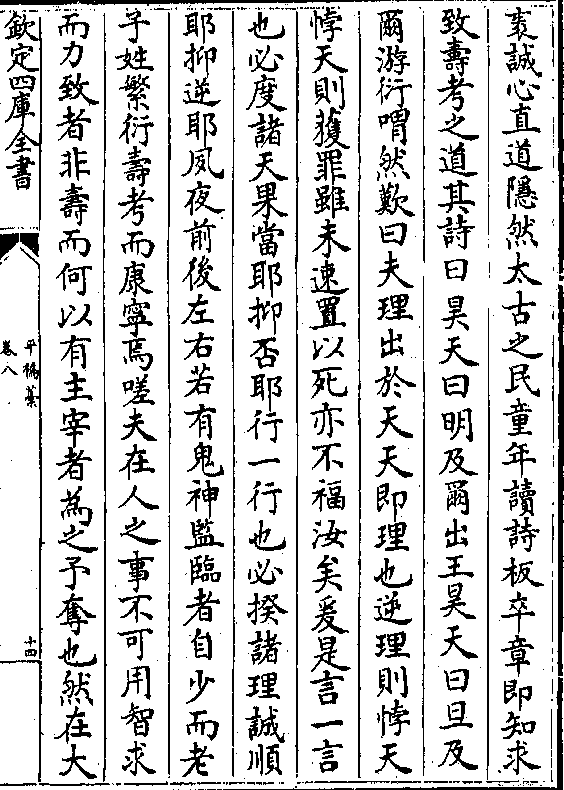 衷誠心直道隱然太古之民童年讀詩板卒章即知求
致壽考之道其詩曰昊天曰明及爾出王昊天曰旦及
爾游衍喟然歎曰夫理出於天天即理也逆理則悖天
悖天則獲罪雖未速置以死亦不福汝矣爰是言一言
也必度諸天果當耶抑否耶行一行也必揆諸理誠順
耶抑逆耶夙夜前後左右若有鬼神監臨者自少而老
子姓繁衍壽考而康寧焉嗟夫在人之事不可用智求
而力致者非壽而何以有主宰者為之予奪也然在大
欽定四庫全書
平橋藁
卷八
十四